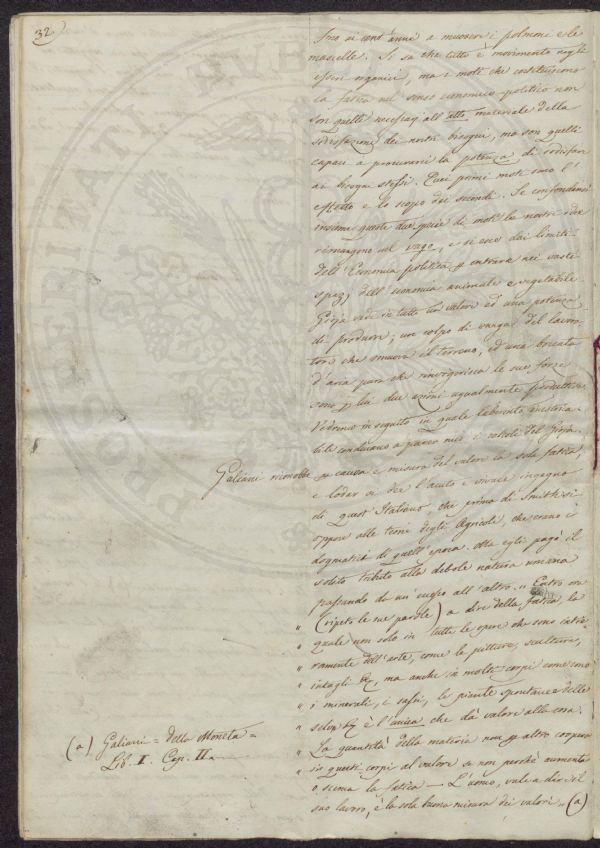 32
sino ai cent'anni a muover i polmoni e le
mascelle. Si sa che tutto è movimento negli
esseri organici, ma i moti che costituiscono
la fatica nel senso economico politico non
son quelli necessarj all'atto materiale della
sodisfazione dei nostri bisogni, ma son quelli
capaci a procurarci la potenza di sodisfare
ai bisogni stessi. Quei primi moti sono l'
effetto e lo scopo dei secondi. Se confondiamo
insieme queste due specie di moti le nostre idee
rimangono nel vago, e si esce dai limiti
dell'Economia politica p entrare nei vasti
spazj dell'economia animale e vegetabile
Gioja vede in tutto un valore ed una potenza
di produrre; un colpo di vanga del lavora-
tore che smuova il terreno, ed una boccata
d'aria pura che rinvigorisca le sue forze
sono p lui due azioni ugualmente produttive.
Vedremo in seguito in quale laberinto inestrica-
bile conducano a parer mio i calcoli del Gioja.
Galiani riconobbe p causa e misura del valore la sola fatica,
e lodar si dee l'acuto e vivace ingegno
di quest'Italiano, che primo di Smith si
oppose alle teorie degli Agricoli, che erano i
dogmatici di quell'epoca. Ma egli pagò il
solito tributo alla debole natura umana
passando da un'eccesso all'altro. „ Entro ora
„ (ripeto le sue parole) a dire della fatica, la
„ quale non solo in tutte le opere che sono intie-
„ ramente dell'arte, come le pitture, sculture,
„ intagli &c, ma anche in molti corpi come sono
„ i minerali, i sassi, le piante spontanee delle
„ selve &c è l'unica che dà valore alla cosa.
„ La quantità della materia non p altro coopera
„ in questi corpi al valore se non perchè aumenta
„ o scema la fatica — L'uomo, vale a dire il
suo lavoro, è la sola buona misura dei valori „ (a)
(a) Galiani = della Moneta =
Lib. I. Cap. II.